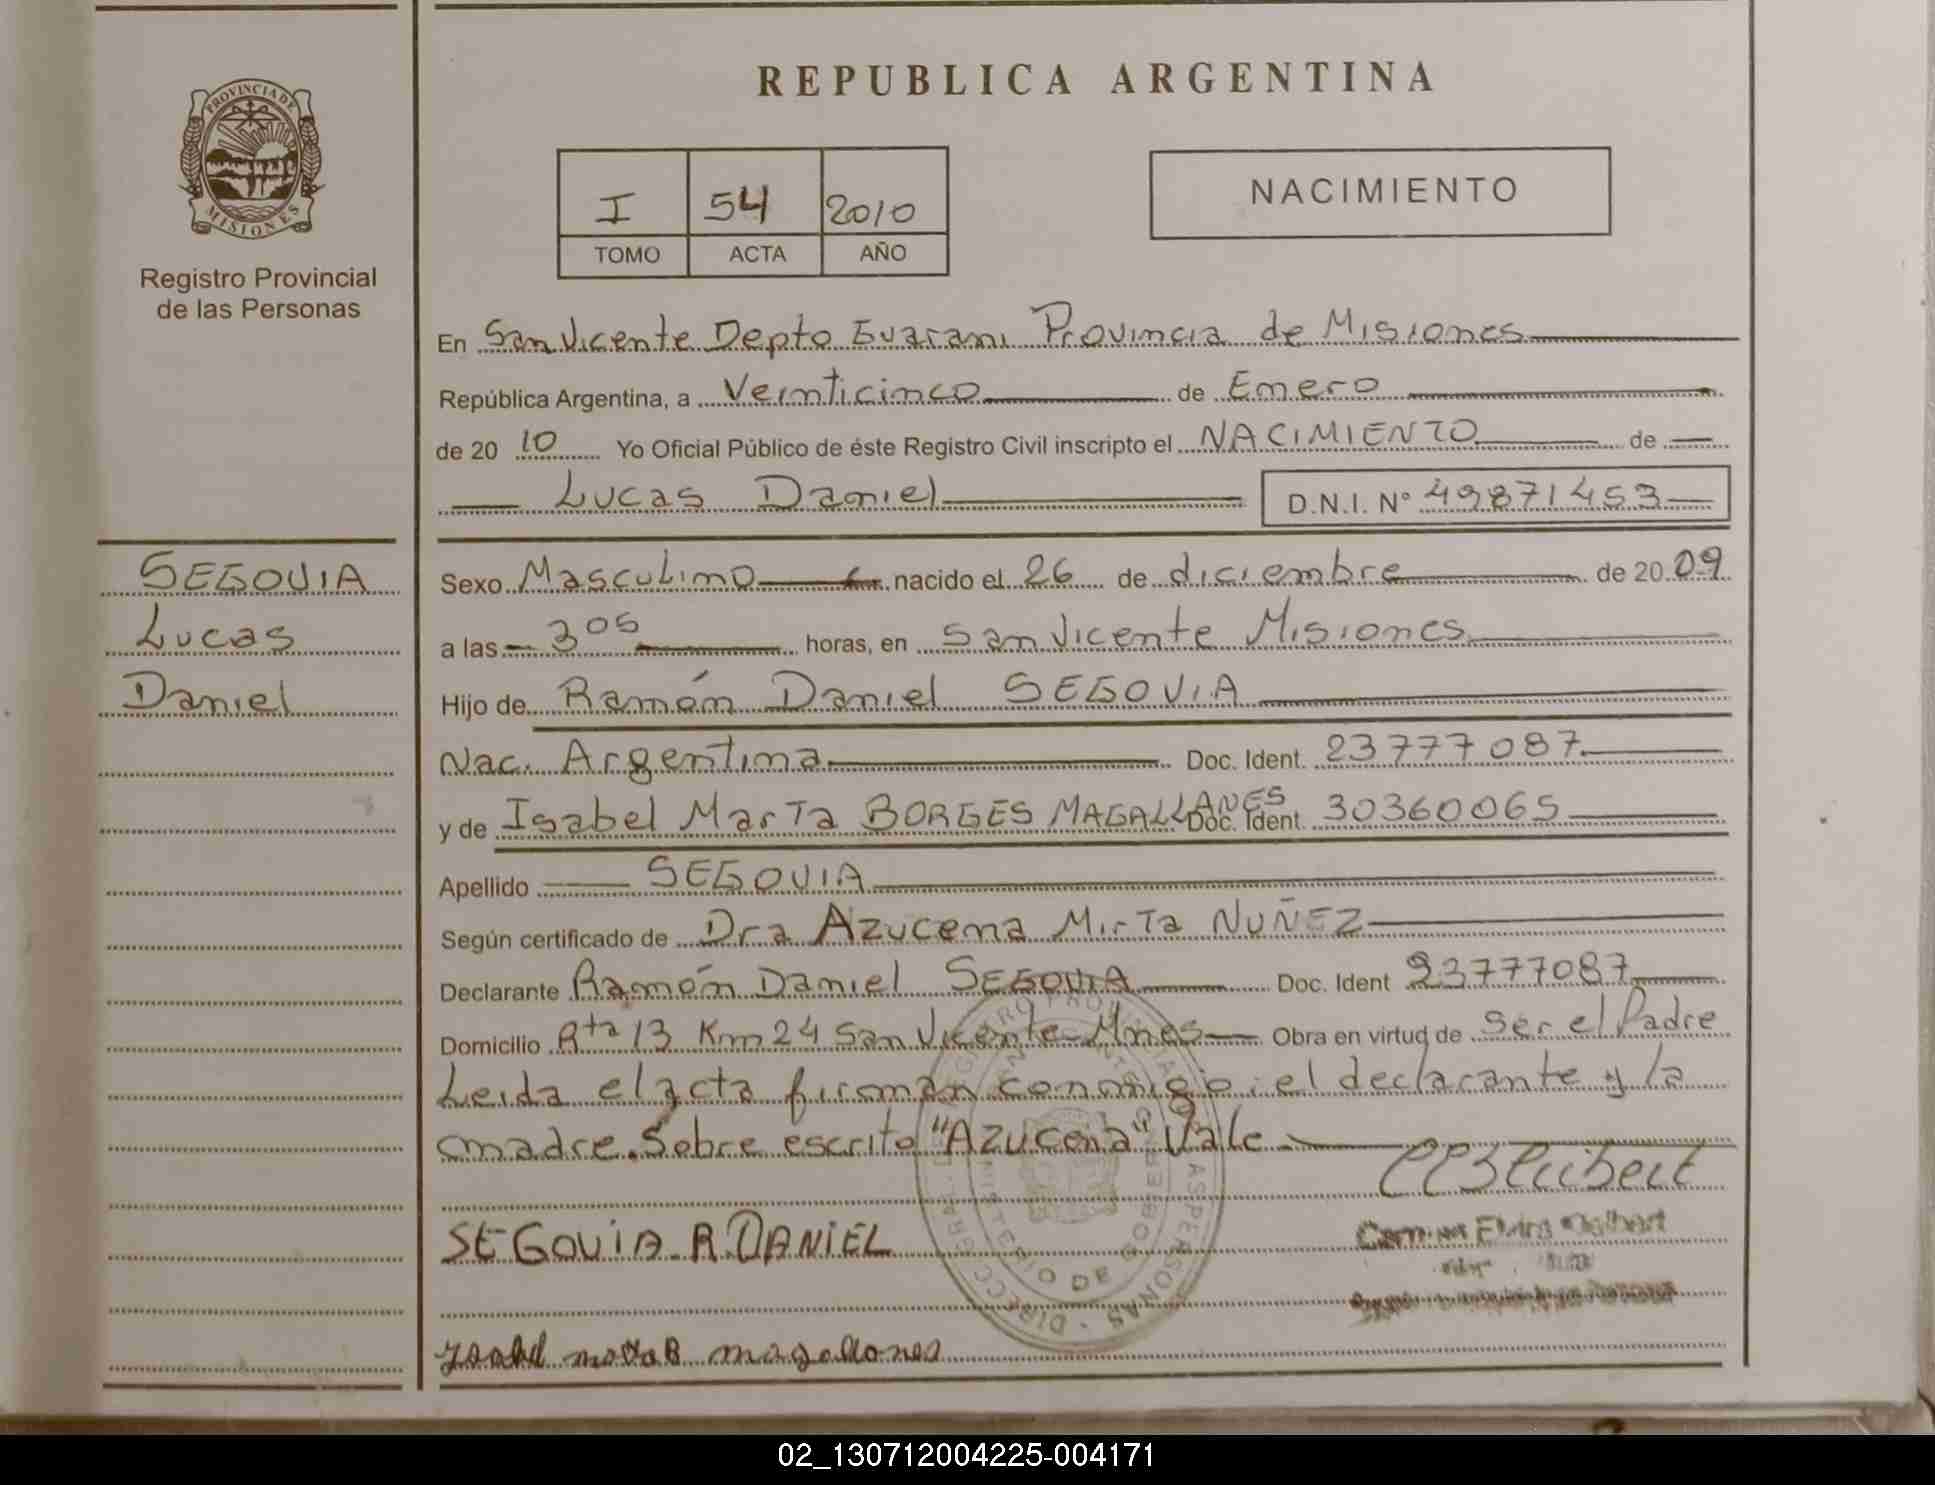 REPUBLICA ARGENTINA
PROVINCIA DE MISIONES
Registro Provincial
de las Personas
I 54 2010
TOMO ACTA AÑO
NACIMIENTO
En San Vicente Depto Guarani Provincia de Misiones
República Argentina, a Veinticinco de Enero
de 20 10 Yo Oficial Público de éste Registro Civil inscripto el NACIMIENTO de
Lucas Daniel D.N.I. Nº 49871453
SEGOVIA
Lucas
Daniel
Sexo Masculino nacido el 26 de diciembre de 20 09
a las 3 05 horas, en San Vicente Misiones
Hijo de Ramón Daniel SEGOVIA
Nac. Argentina Doc. Ident. 23777087
y de Isabel Marta BORGES MAGALLANES Doc. Ident. 30360065
Apellido SEGOVIA
Según certificado de Dra Azucena Mirta NUÑEZ
Declarante Ramón Daniel SEGOVIA Doc. Ident 23777087
Domicilio Rta 13 Km 24 San Vicente Mnes Obra en virtud de Ser el Padre
Leida el acta firman conmigo: el declarante y la
madre. Sobre escrito "Azucena" Vale
SEGOVIA R. DANIEL
02_130712004225-004171